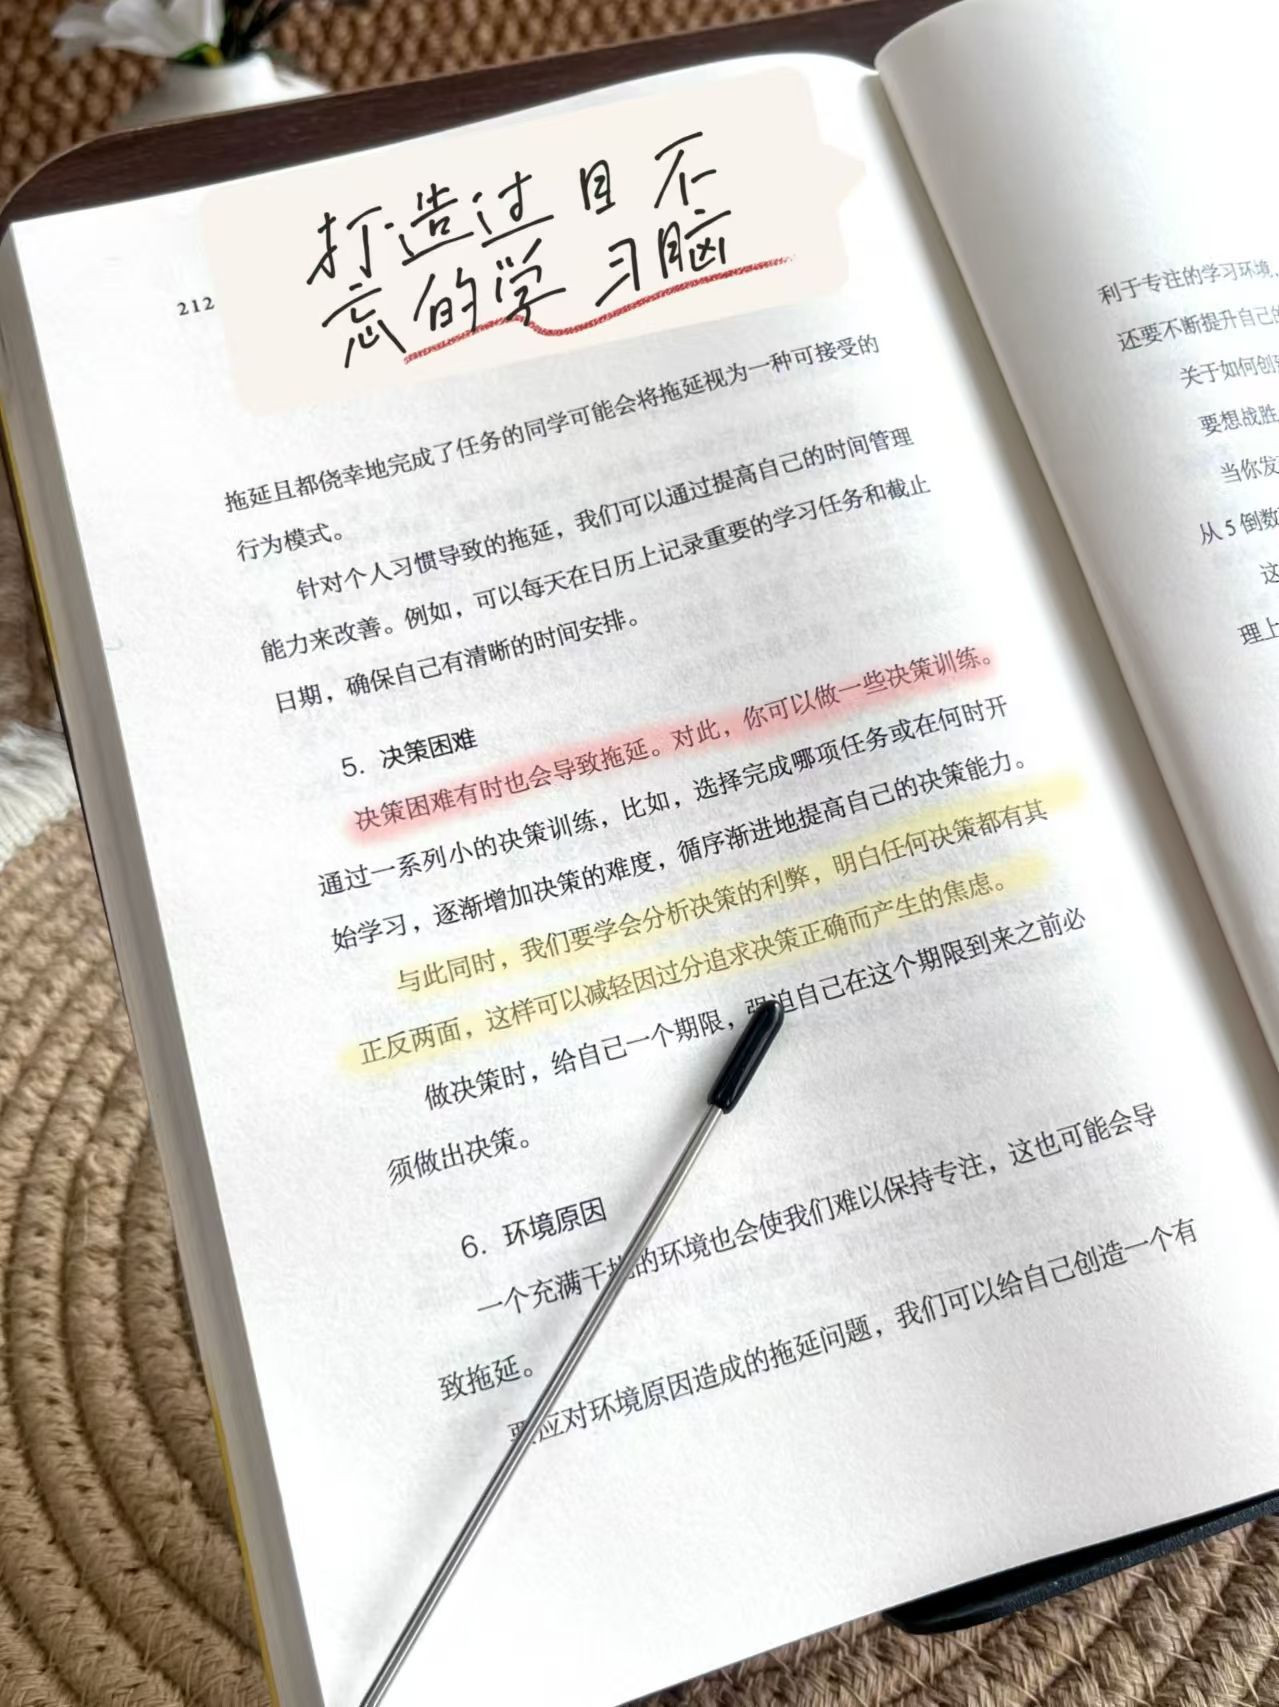 打造过目不
忘的学习脑
212
拖延且都侥幸地完成了任务的同学可能会将拖延视为一种可接受的
行为模式。
针对个人习惯导致的拖延，我们可以通过提高自己的时间管理
能力来改善。例如，可以每天在日历上记录重要的学习任务和截止
日期，确保自己有清晰的时间安排。
5. 决策困难
决策困难有时也会导致拖延。对此，你可以做一些决策训练。
通过一系列小的决策训练，比如，选择完成哪项任务或在何时开
始学习，逐渐增加决策的难度，循序渐进地提高自己的决策能力。
与此同时，我们要学会分析决策的利弊，明白任何决策都有其
正反两面，这样可以减轻因过分追求决策正确而产生的焦虑。
做决策时，给自己一个期限，强迫自己在这个期限到来之前必
须做出决策。
6. 环境原因
一个充满干扰的环境也会使我们难以保持专注，这也可能会导
致拖延。
要应对环境原因造成的拖延问题，我们可以给自己创造一个有
利于专注的学习环境，
还要不断提升自己的
关于如何创
要想战胜
当你发
从5倒数
这
理上